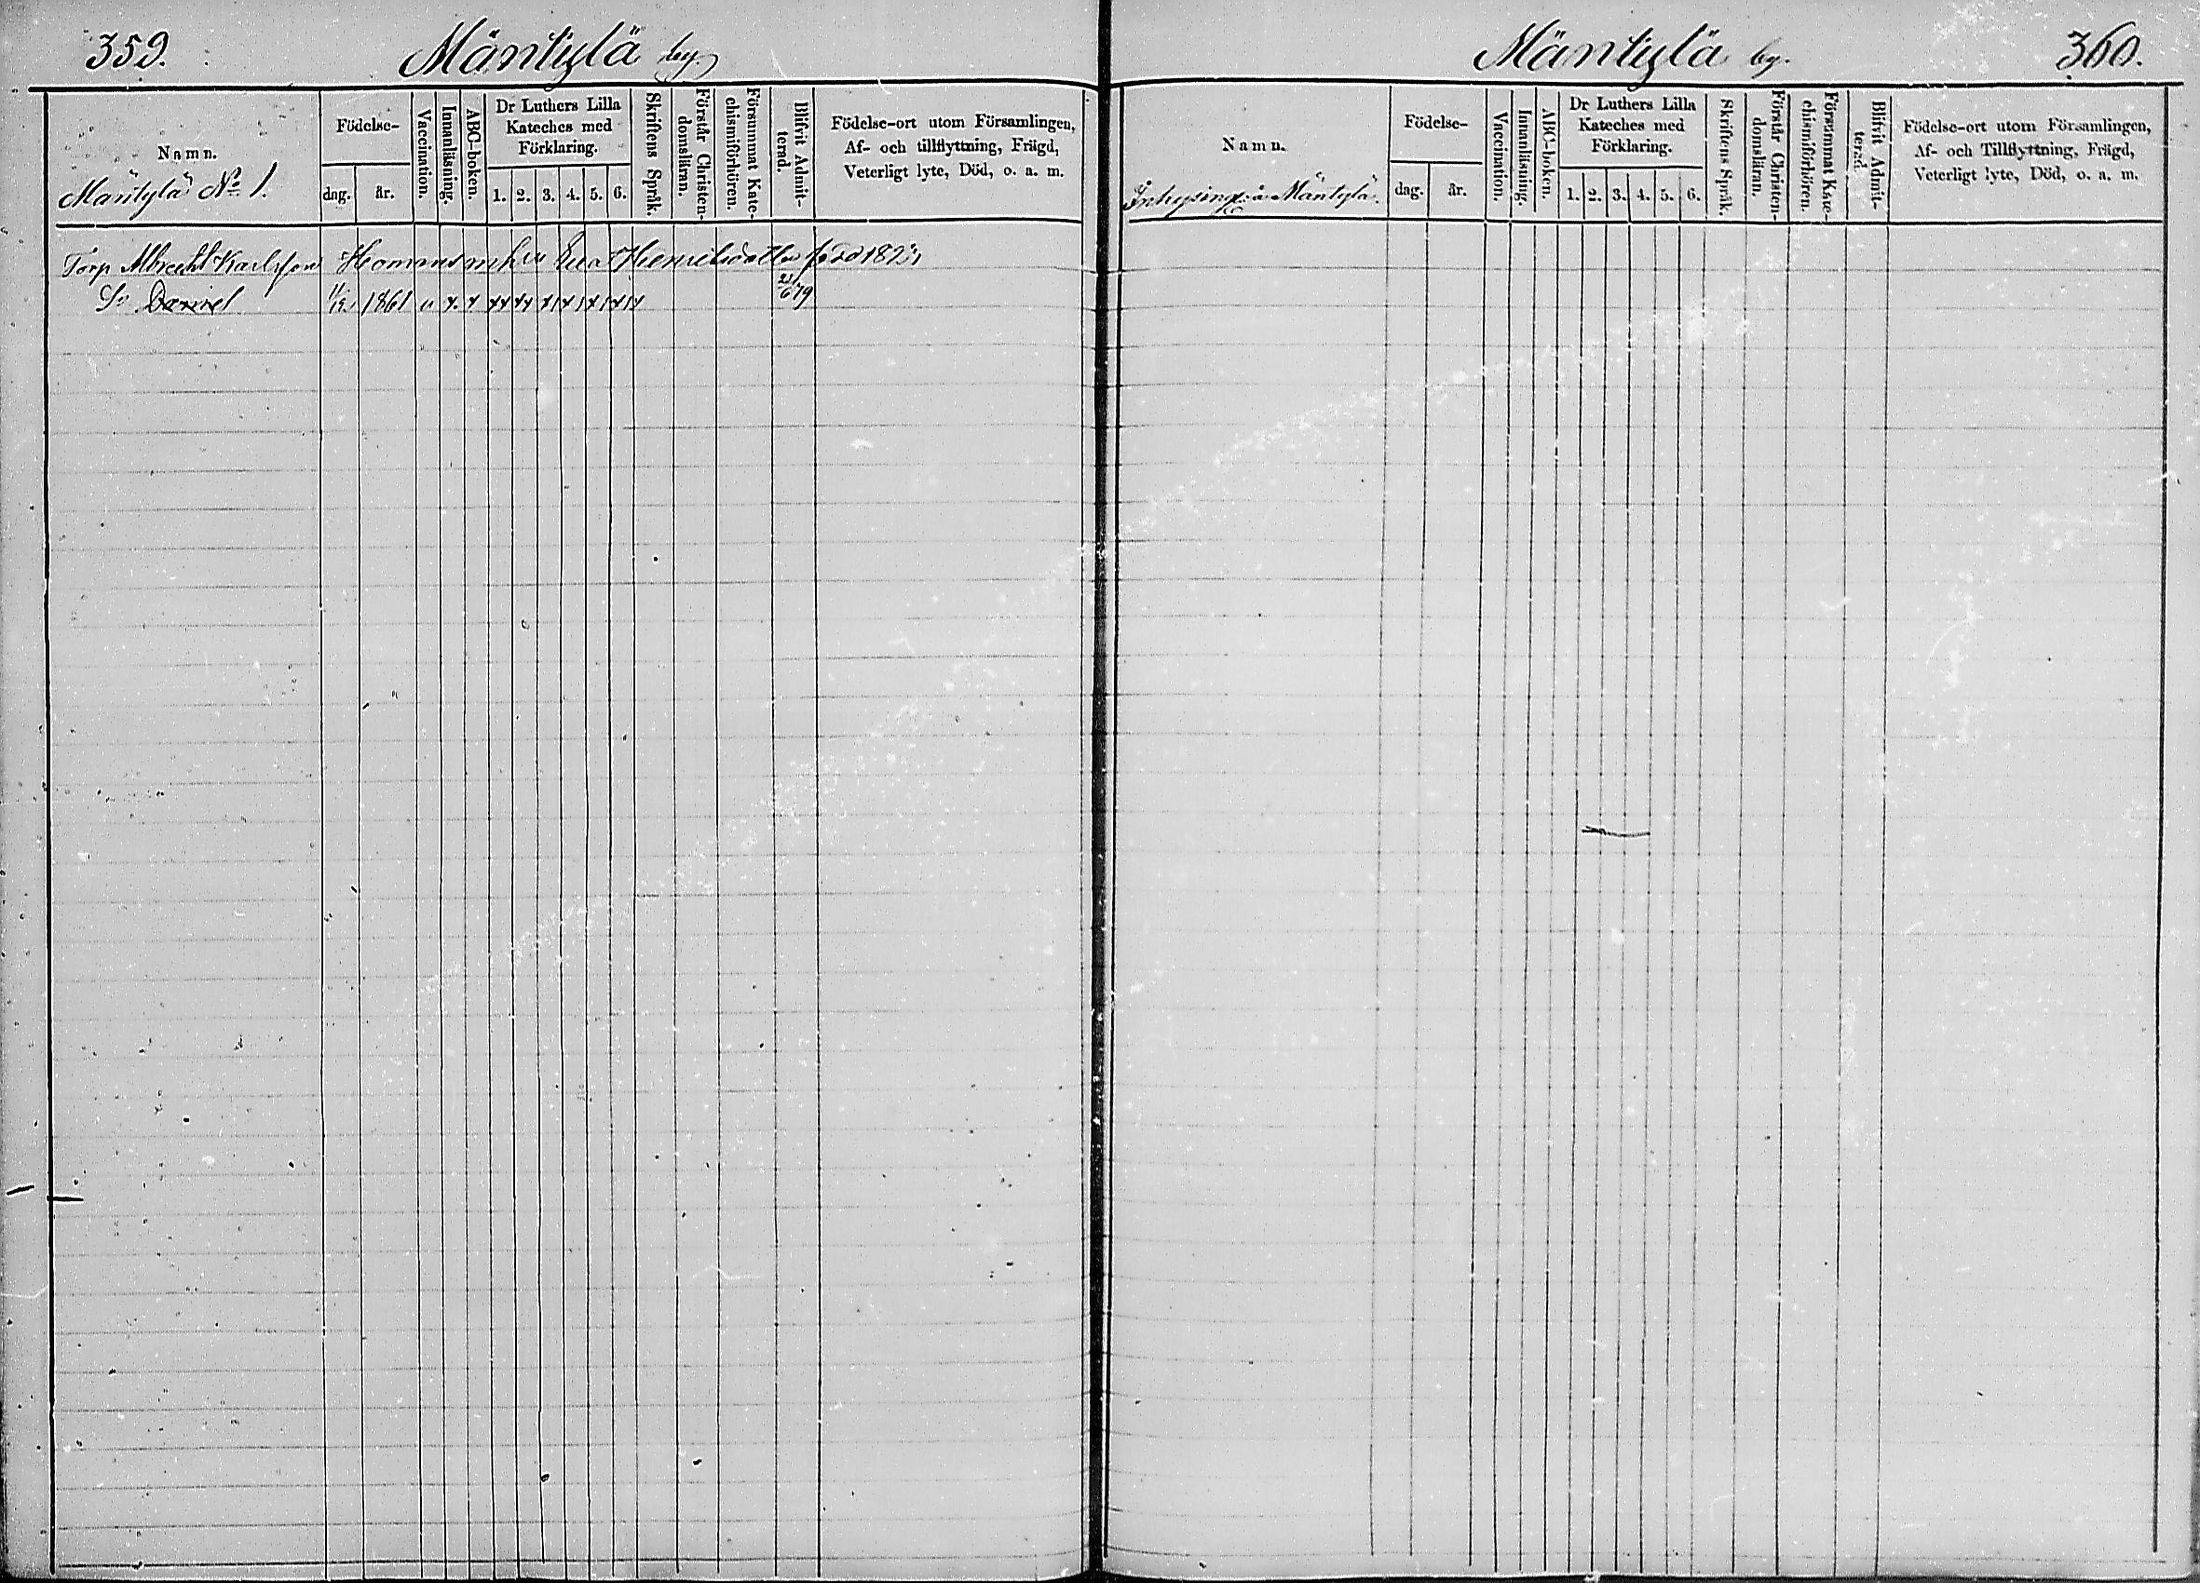 359. Mäntylä by
Namn.
Mäntylä No 1.
Födelse-
dag. år.
Vaccination.
Innanläsning.
ABC-boken.
Dr Luthers Lilla
Kateches med
Förklaring.
1. 2. 3. 4. 5. 6.
Skriftens Språk.
Förstår Christen-
domsläran.
Försummat Kate-
chismiförhören.
Blifvit Admit-
terad.
Födelse-ort utom Församlingen,
Af- och tillflyttning, Frägd,
Veterligt lyte, Död, o. a. m.
Torp Albrecht Karlsson Eva Henriksdotter född
Sv Daniel 1861 21/6 79
Mäntylä by. 360.
Namn.
Inhysing å Mäntylä.
Födelse-
dag. år.
Vaccination.
Innanläsning.
ABC-boken.
Dr Luthers Lilla
Kateches med
Förklaring.
1. 2. 3. 4. 5. 6.
Skriftens Språk.
Förstår Christen-
domsläran.
Försummat Kate-
chismiförhören.
Blifvit Admit-
terad.
Födelse-ort utom Församlingen,
Af- och Tillflyttning, Frägd,
Veterligt lyte, Död, o. a. m.